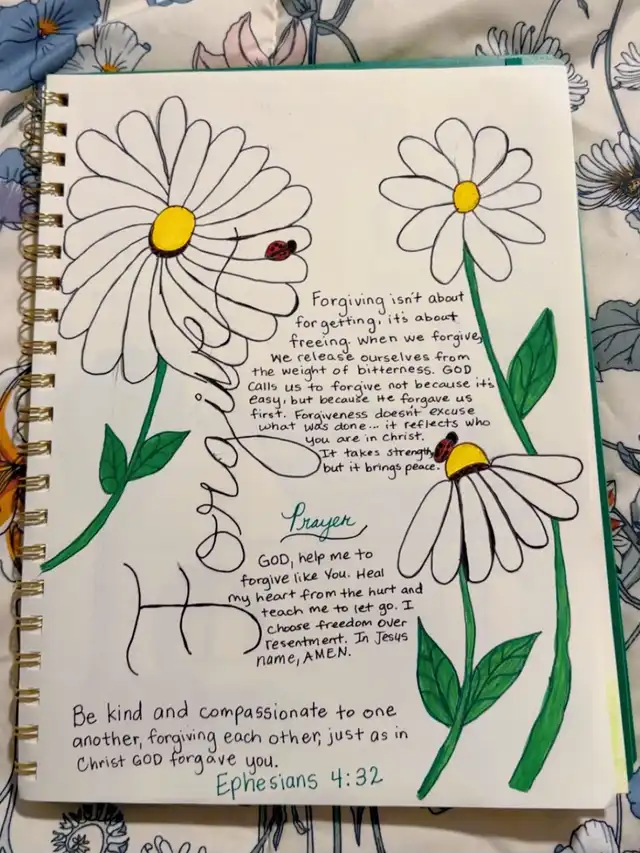 Forgive
Forgiving isn't about
forgetting, it's about
freeing. When we forgive,
we release ourselves from
the weight of bitterness. GOD
calls us to forgive not because it's
easy, but because He forgave us
first. Forgiveness doesn't excuse
what was done... it reflects who
you are in Christ.
It takes strength,
but it brings peace.
Prayer
GOD, help me to
forgive like You. Heal
my heart from the hurt and
teach me to let go. I
choose freedom over
resentment. In Jesus
name, AMEN.
Be kind and compassionate to one
another, forgiving each other, just as in
Christ GOD forgave you.
Ephesians 4:32